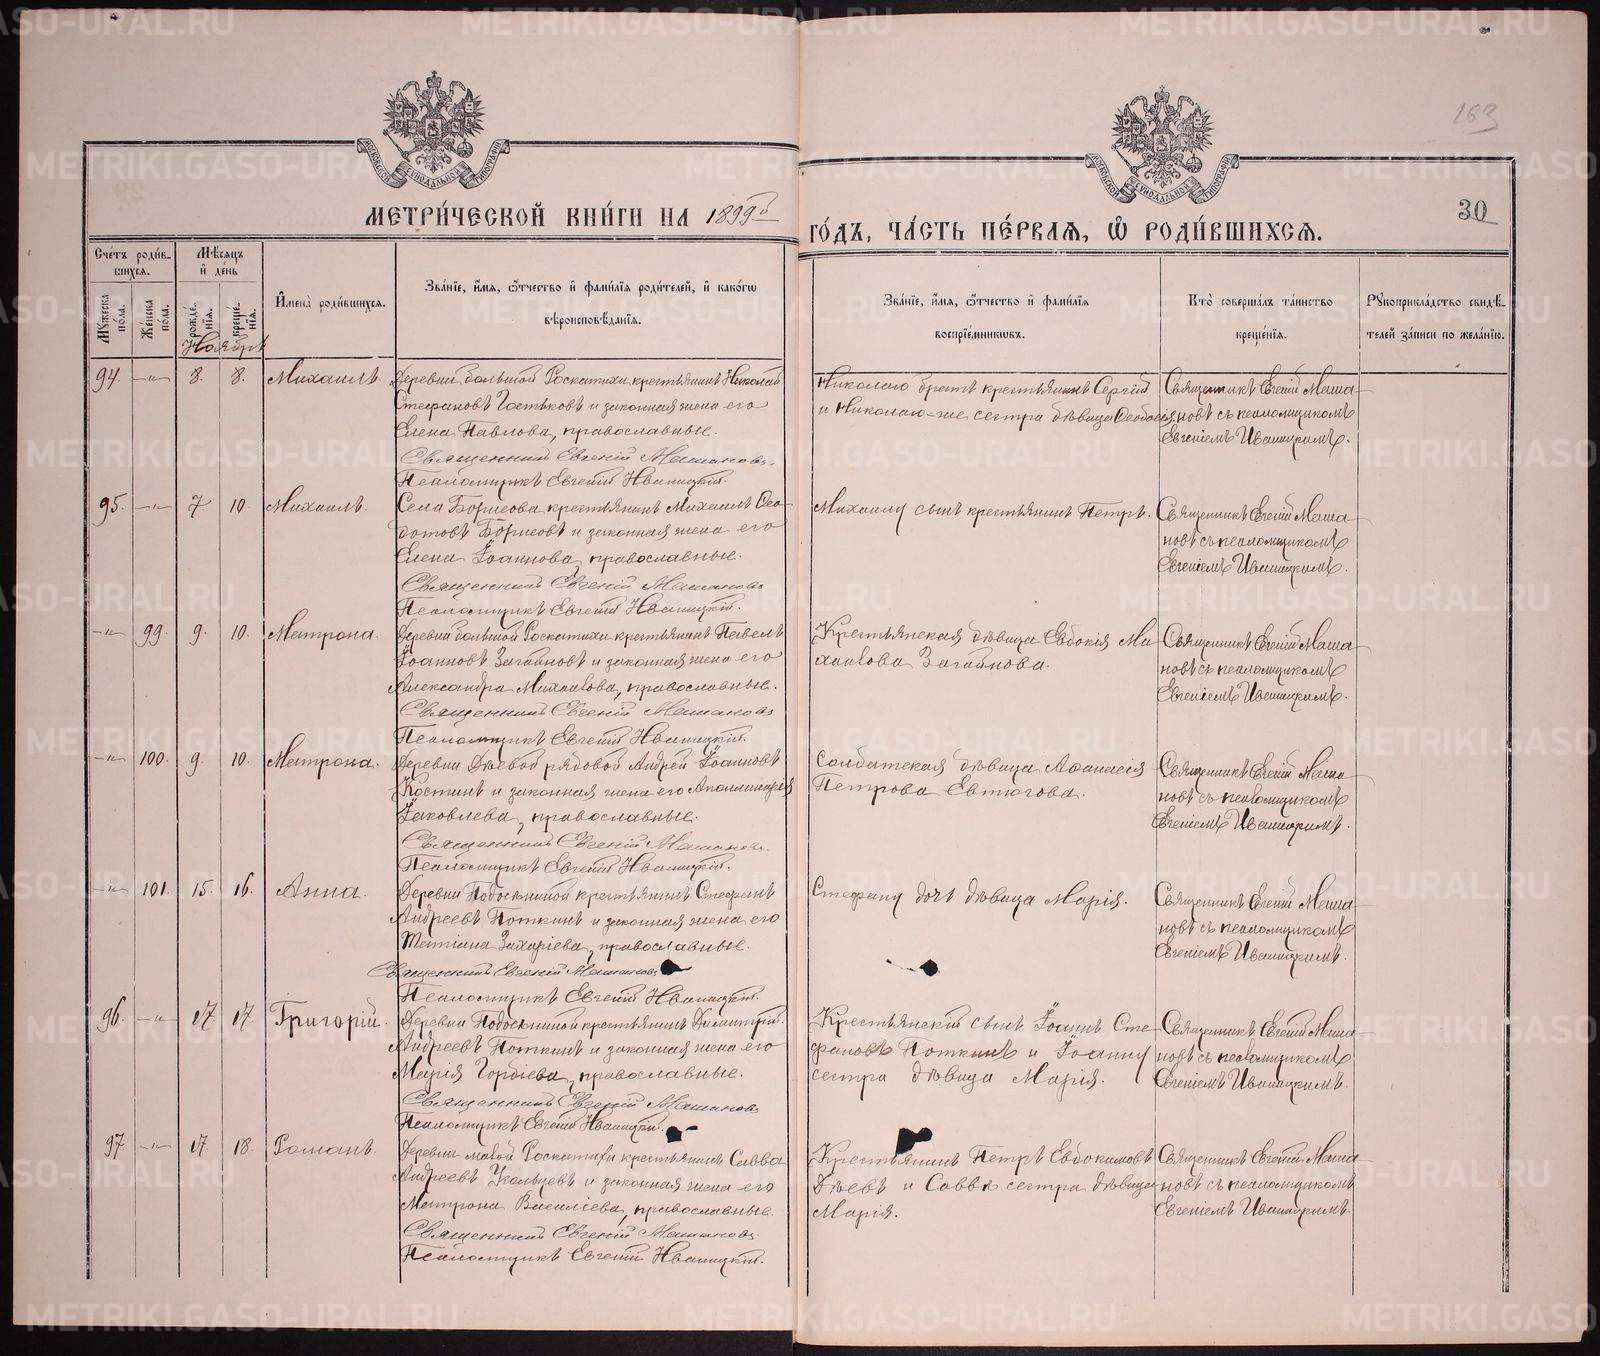 METRIKI.GASO-URAL.RU
183
МОСКОВСКОЙ СУНОДАЛЬНОЙ ТИПОГРАФИИ
МОСКОВСКОЙ СУНОДАЛЬНОЙ ТИПОГРАФИИ
МЕТРИ́ЧЕСКОЙ КНИ́ГИ НА 1899й
ГО́ДЪ, ЧА́СТЬ ПЕ́РВАѦ, Ѽ РОДИ́ВШИХСѦ.
30
Сче́тъ роди́в-
шихсѧ.
Мꙋ́жеска по́ла.
Же́нска по́ла.
Мѣ́сѧцъ и де́нь
рожде́нїѧ.
креще́нїѧ.
Ноябрь
Имена̀ роди́вшихсѧ.
Зва́нїе, и́мѧ, ѻ́тчество и фами́лїѧ роди́телей, и како́гѡ
вѣроисповѣ́данїѧ.
Зва́нїе, и́мѧ, ѻ́тчество и фами́лїѧ
воспрїе́мникѡвъ.
Кто̀ соверша́лъ та́инство
креще́нїѧ.
Рꙋкоприкла́дство свидѣ́-
телей за́писи по жела́нїю.
94. —"— 8. 8. Михаилъ.
Деревни большой Роскатихи крестьянинъ Николай
Стефановъ Гостьковъ и законная жена его
Елена Павлова, православные.
Священникъ Евгений Машановъ.
Псаломщикъ Евгений Иваницкій.
Николаю братъ крестьянинъ Сергій
и Николаю-же сестра дѣвица Ѳеодосія
Священникъ Евгеній Маша-
новъ съ псаломщикомъ
Евгеніемъ Иваницкимъ.
95. —"— 7 10. Михаилъ.
Села Борисова крестьянинъ Михаилъ Ѳео-
дотовъ Борисовъ и законная жена его
Елена Іоаннова, православные.
Священникъ Евгеній Машановъ
Псаломщикъ Евгеній Иваницкій.
Михаилу сынъ крестьянинъ Петръ.
Священникъ Евгеній Маша-
новъ съ псаломщикомъ
Евгеніемъ Иваницкимъ.
—"— 99. 9. 10. Матрона.
Деревни большой Роскатихи крестьянинъ Павелъ
Іоанновъ Загайновъ и законная жена его
Александра Михаилова, православные.
Священникъ Евгеній Машановъ
Псаломщикъ Евгеній Иваницкій.
Крестьянская дѣвица Евдокія Ми-
хаилова Загайнова.
Священникъ Евгеній Маша-
новъ съ псаломщикомъ
Евгеніемъ Иваницкимъ.
—"— 100. 9. 10. Матрона.
Деревни Дѣевой рядовой Андрей Іоанновъ
Костинъ и законная жена его Аполлинарія
Іаковлева, православные.
Священникъ Евгеній Машановъ.
Псаломщикъ Евгеній Иваницкій.
Солдатская дѣвица Аѳанасія
Петрова Евтюгова.
Священникъ Евгеній Маша-
новъ съ псаломщикомъ
Евгеніемъ Иваницкимъ.
—"— 101. 15. 16. Анна.
Деревни Подосениной крестьянинъ Стефанъ
Андреевъ Поткинъ и законная жена его
Татіана Захаріева, православные.
Священникъ Евгеній Машановъ
Псаломщикъ Евгеній Иваницкій.
Стефану дочь дѣвица Марія.
Священникъ Евгеній Маша-
новъ съ псаломщикомъ
Евгеніемъ Иваницкимъ.
96. —"— 17 17. Григорій.
Андреевъ Поткинъ и законная жена его
Марія Гордіева, православные.
Священникъ Евгеній Машановъ
Псаломщикъ Евгеній Иваницкій.
Крестьянскій сынъ Іоаннъ Сте-
фановъ Поткинъ и Іоанну
сестра дѣвица Марія.
Священникъ Евгеній Маша-
новъ съ псаломщикомъ
Евгеніемъ Иваницкимъ.
97. —"— 17 18. Романъ.
Деревни малой Роскатихи крестьянинъ Савва
Андреевъ Усольцевъ и законная жена его
Матрона Василіева, православные.
Священникъ Евгеній Машановъ.
Псаломщикъ Евгеній Иваницкій.
Крестьянинъ Петръ Евдокимовъ
Дѣевъ и Саввѣ сестра дѣвица
Марія.
Священникъ Евгеній Маша-
новъ съ псаломщикомъ
Евгеніемъ Иваницкимъ.